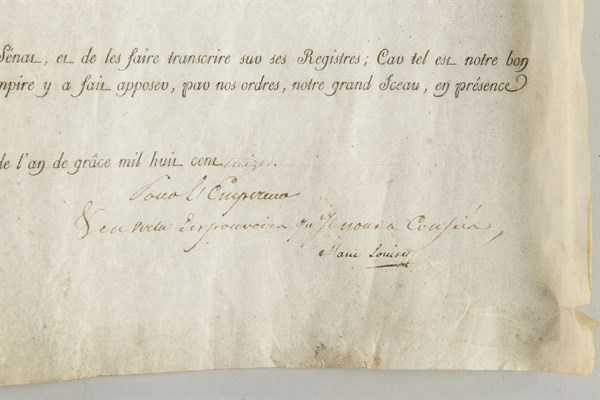 Sénat, et de les faire transcrire sur ses Registres; Car tel est notre bon
mpire y a fait apposer, par nos ordres, notre grand Sceau, en présence
de l'an de grâce mil huit cent treize.
Pour l'Empereur
& en vertu des pouvoirs qu'Il nous a Confiés,
Marie Louise